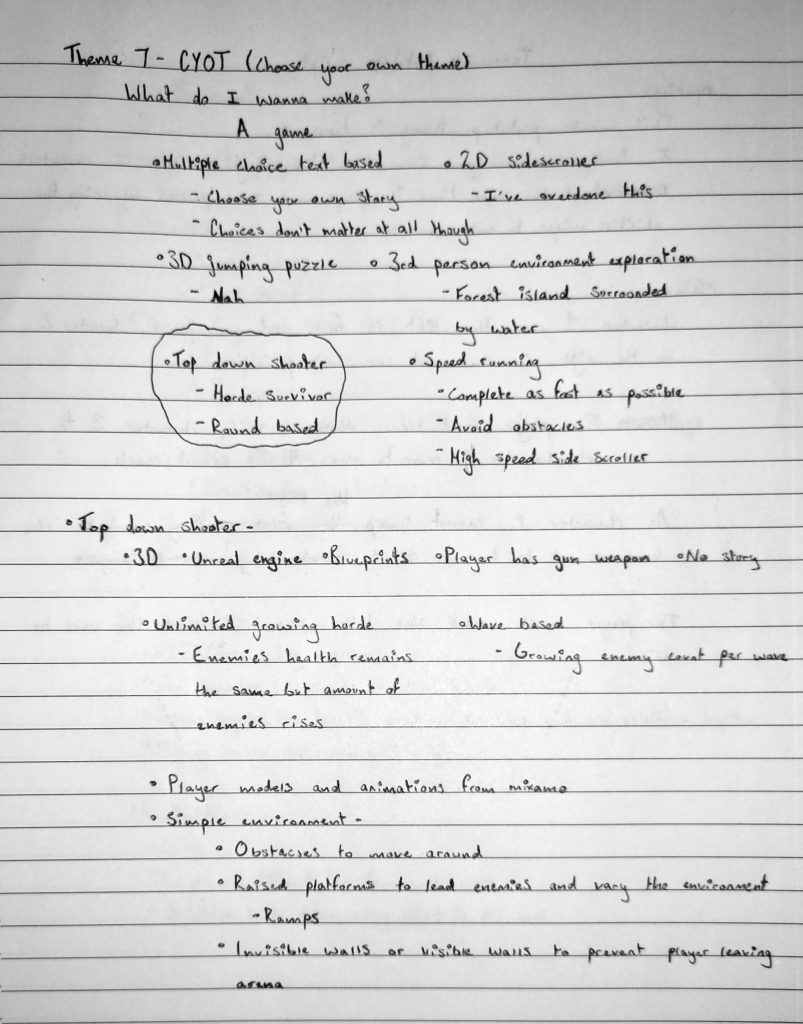 Theme 7 - CYOT (Choose your own theme)
What do I wanna make?
A game
• Multiple choice text based • 2D sidescroller
- Choose your own story - I've overdone this
- Choices don't matter at all though
• 3D jumping puzzle • 3rd person environment exploration
- Nah - Forest island surrounded
by water
• Top down shooter • Speed running
- Horde survivor - Complete as fast as possible
- Round based - Avoid obstacles
- High speed side scroller
• Top down shooter -
• 3D • Unreal engine • Blueprints • Player has gun weapon • No story
• Unlimited growing horde • Wave based
- Enemies health remains - Growing enemy count per wave
the same but amount of
enemies rises
• Player models and animations from mixamo
• Simple environment -
• Obstacles to move around
• Raised platforms to lead enemies and vary the environment
- Ramps
• Invisible walls or visible walls to prevent player leaving
arena